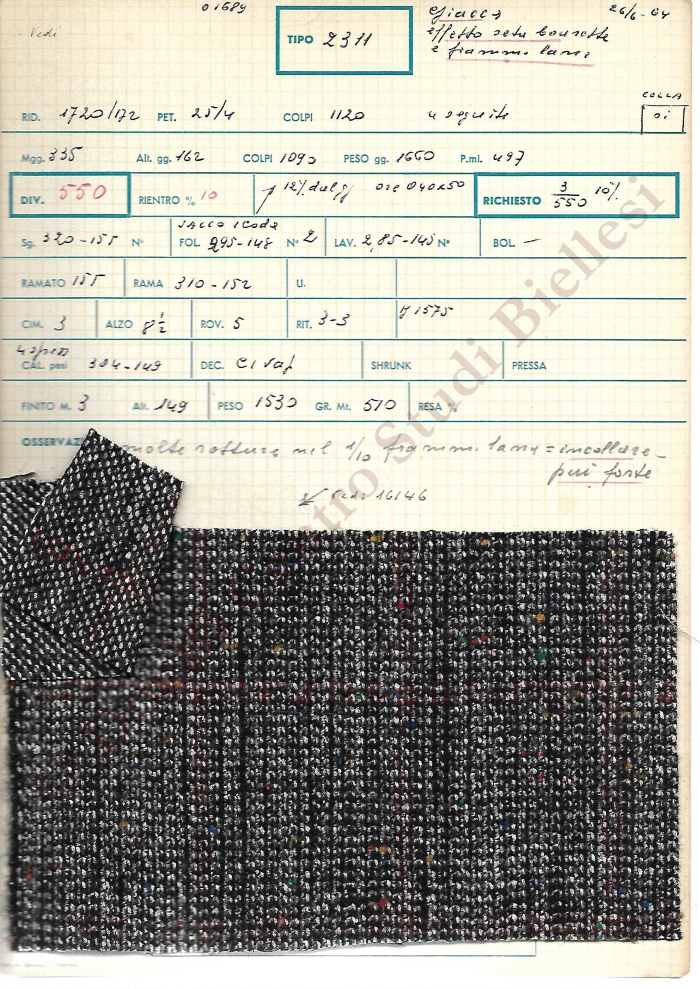 01689
Vedi
TIPO 2311
Giacca
effetto seta bourette
e fiammi lana
26/6-64
RID. 1720/172 PET. 25/4 COLPI 1120
COLLA
si
Mgg. 335 Alt. gg. 162 COLPI 1090 PESO gg. 1660 P.ml. 497
DIV. 550 RIENTRO % 10 ore 040x50 RICHIESTO 3/550 10%
Sg. 320-155 N° SACCO 1 coda FOL. 295-148 N° 2 LAV. 2,85-145 N° BOL. —
RAMATO 155 RAMA 310-152 U.
CIM. 3 ALZO 8½ ROV. 5 RIT. 3-3 1575
CAL. pezzi 304-149 DEC. SHRUNK PRESSA
FINITO M. 3 Alt. 149 PESO 1530 GR. Mt. 510 RESA %
OSSERVAZI molte rotture nel 1/10 fiammi lana = incollare
più forte
vedi 16146
Centro Studi Biellesi